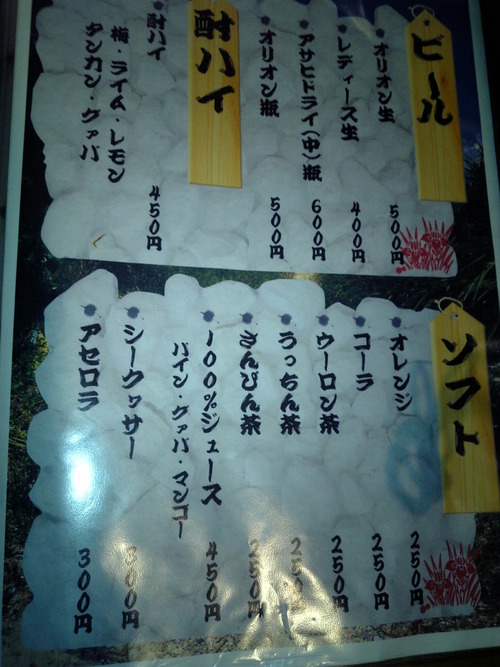 ビール
オリオン生
500円
レディース生
400円
アサヒドライ(中)瓶
600円
オリオン瓶
500円
酎ハイ
酎ハイ
450円
梅・ライム・レモン
タンカン・グァバ
ソフト
オレンジ
250円
コーラ
250円
ウーロン茶
250円
うっちん茶
250円
さんぴん茶
250円
100%ジュース
450円
パイン・グァバ・マンゴー
シークヮサー
300円
アセロラ
300円